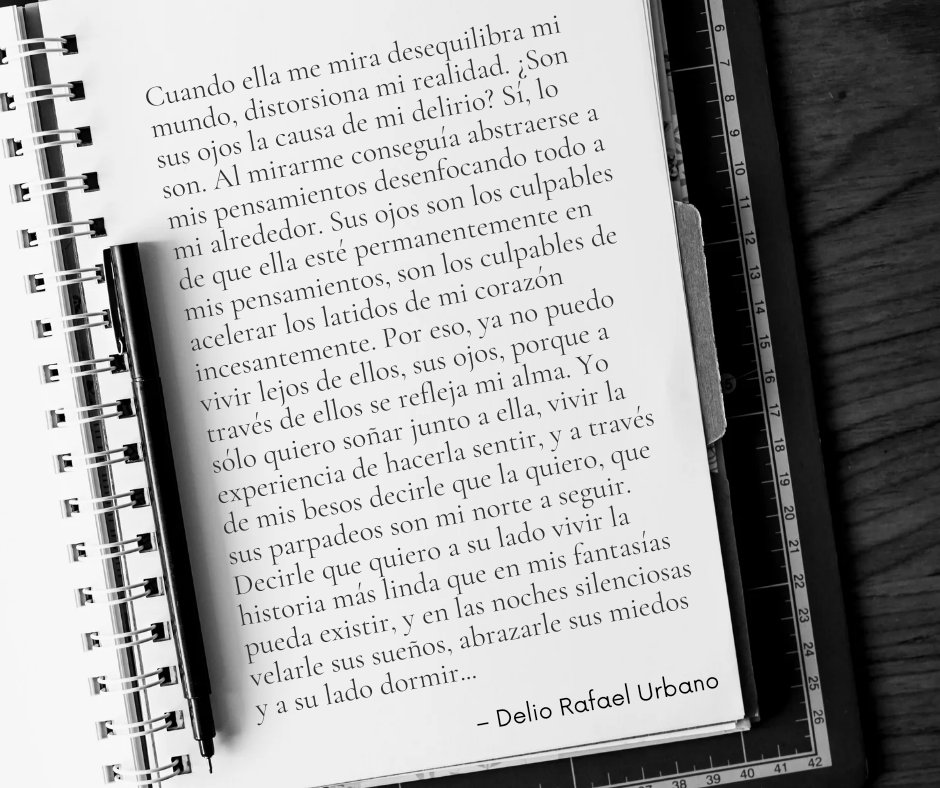 Cuando ella me mira desequilibra mi
mundo, distorsiona mi realidad. ¿Son
sus ojos la causa de mi delirio? Sí, lo
son. Al mirarme conseguía abstraerse a
mis pensamientos desenfocando todo a
mi alrededor. Sus ojos son los culpables
de que ella esté permanentemente en
mis pensamientos, son los culpables de
acelerar los latidos de mi corazón
incesantemente. Por eso, ya no puedo
vivir lejos de ellos, sus ojos, porque a
través de ellos se refleja mi alma. Yo
sólo quiero soñar junto a ella, vivir la
experiencia de hacerla sentir, y a través
de mis besos decirle que la quiero, que
sus parpadeos son mi norte a seguir.
Decirle que quiero a su lado vivir la
historia más linda que en mis fantasías
pueda existir, y en las noches silenciosas
velarle sus sueños, abrazarle sus miedos
y a su lado dormir...
– Delio Rafael Urbano
6
7
8
9
10
11
12
13
14
15
16
17
18
19
20
21
22
23
24
25
26
38
39
40
41
42